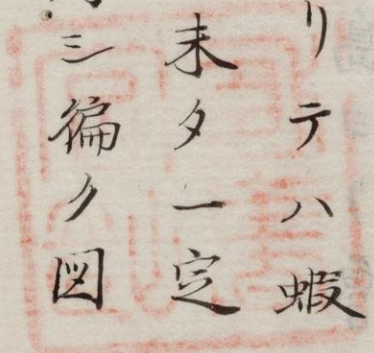 リテハ蝦
未タ一定
ミ徧ク図